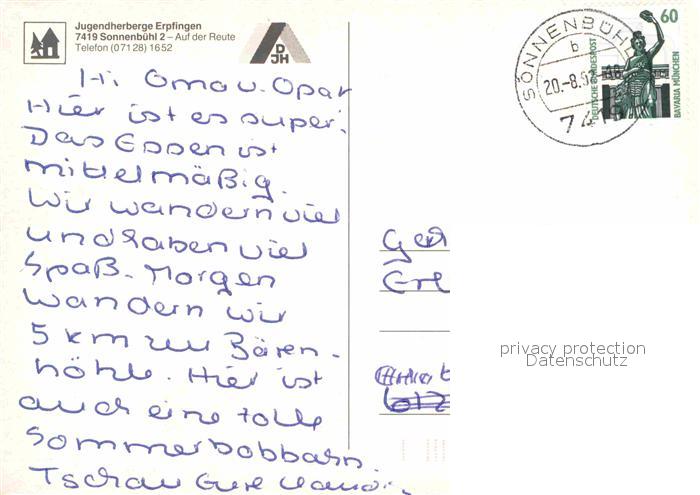 Jugendherberge Erpfingen
7419 Sonnenbühl 2 – Auf der Reute
Telefon (07128) 1652
DJH
SONNENBÜHL
b
20.-8.
74
60
DEUTSCHE BUNDESPOST
BAVARIA MÜNCHEN
Hi Oma u. Opa
Hier ist es super.
Das Essen ist
mittelmäßig.
Wir wandern viel
und haben viel
Spaß. Morgen
wandern wir
5 km zur Bären-
höhle. Hier ist
auch eine tolle
Sommerbobbahn.
Tschau Eure
privacy protection
Datenschutz